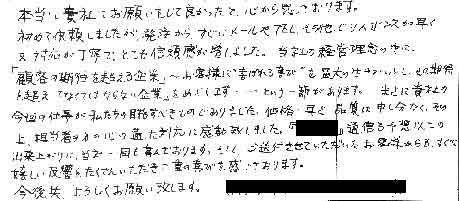 本当に貴社にお願いをして良かったと、心から思っております。
初めて依頼しましたが、発注からすぐにメールや TEL、その他レスポンスが早く
又対応が丁寧で、とても信頼感が増しました。当社の経営理念の中に
「顧客の期待を超える企業」～お客様に喜ばれる事が を最大の とし、その期待
を超えなくてはならない企業をめざします…という一節があります。まさに貴社の
今回の仕事が私たちの目指すべきものでありました。価格、早さ、品質は申し分なく、その
上、担当者 の心の通った対応に感動致しました。「 」通信も予想以上の
出来上がりに、当社一同も喜んでおります。そして、ご送付させていただいたお客様からも、すぐに
嬉しい反響をたくさんいただき二重の喜びを感じております。
今後共、よろしくお願い致します。